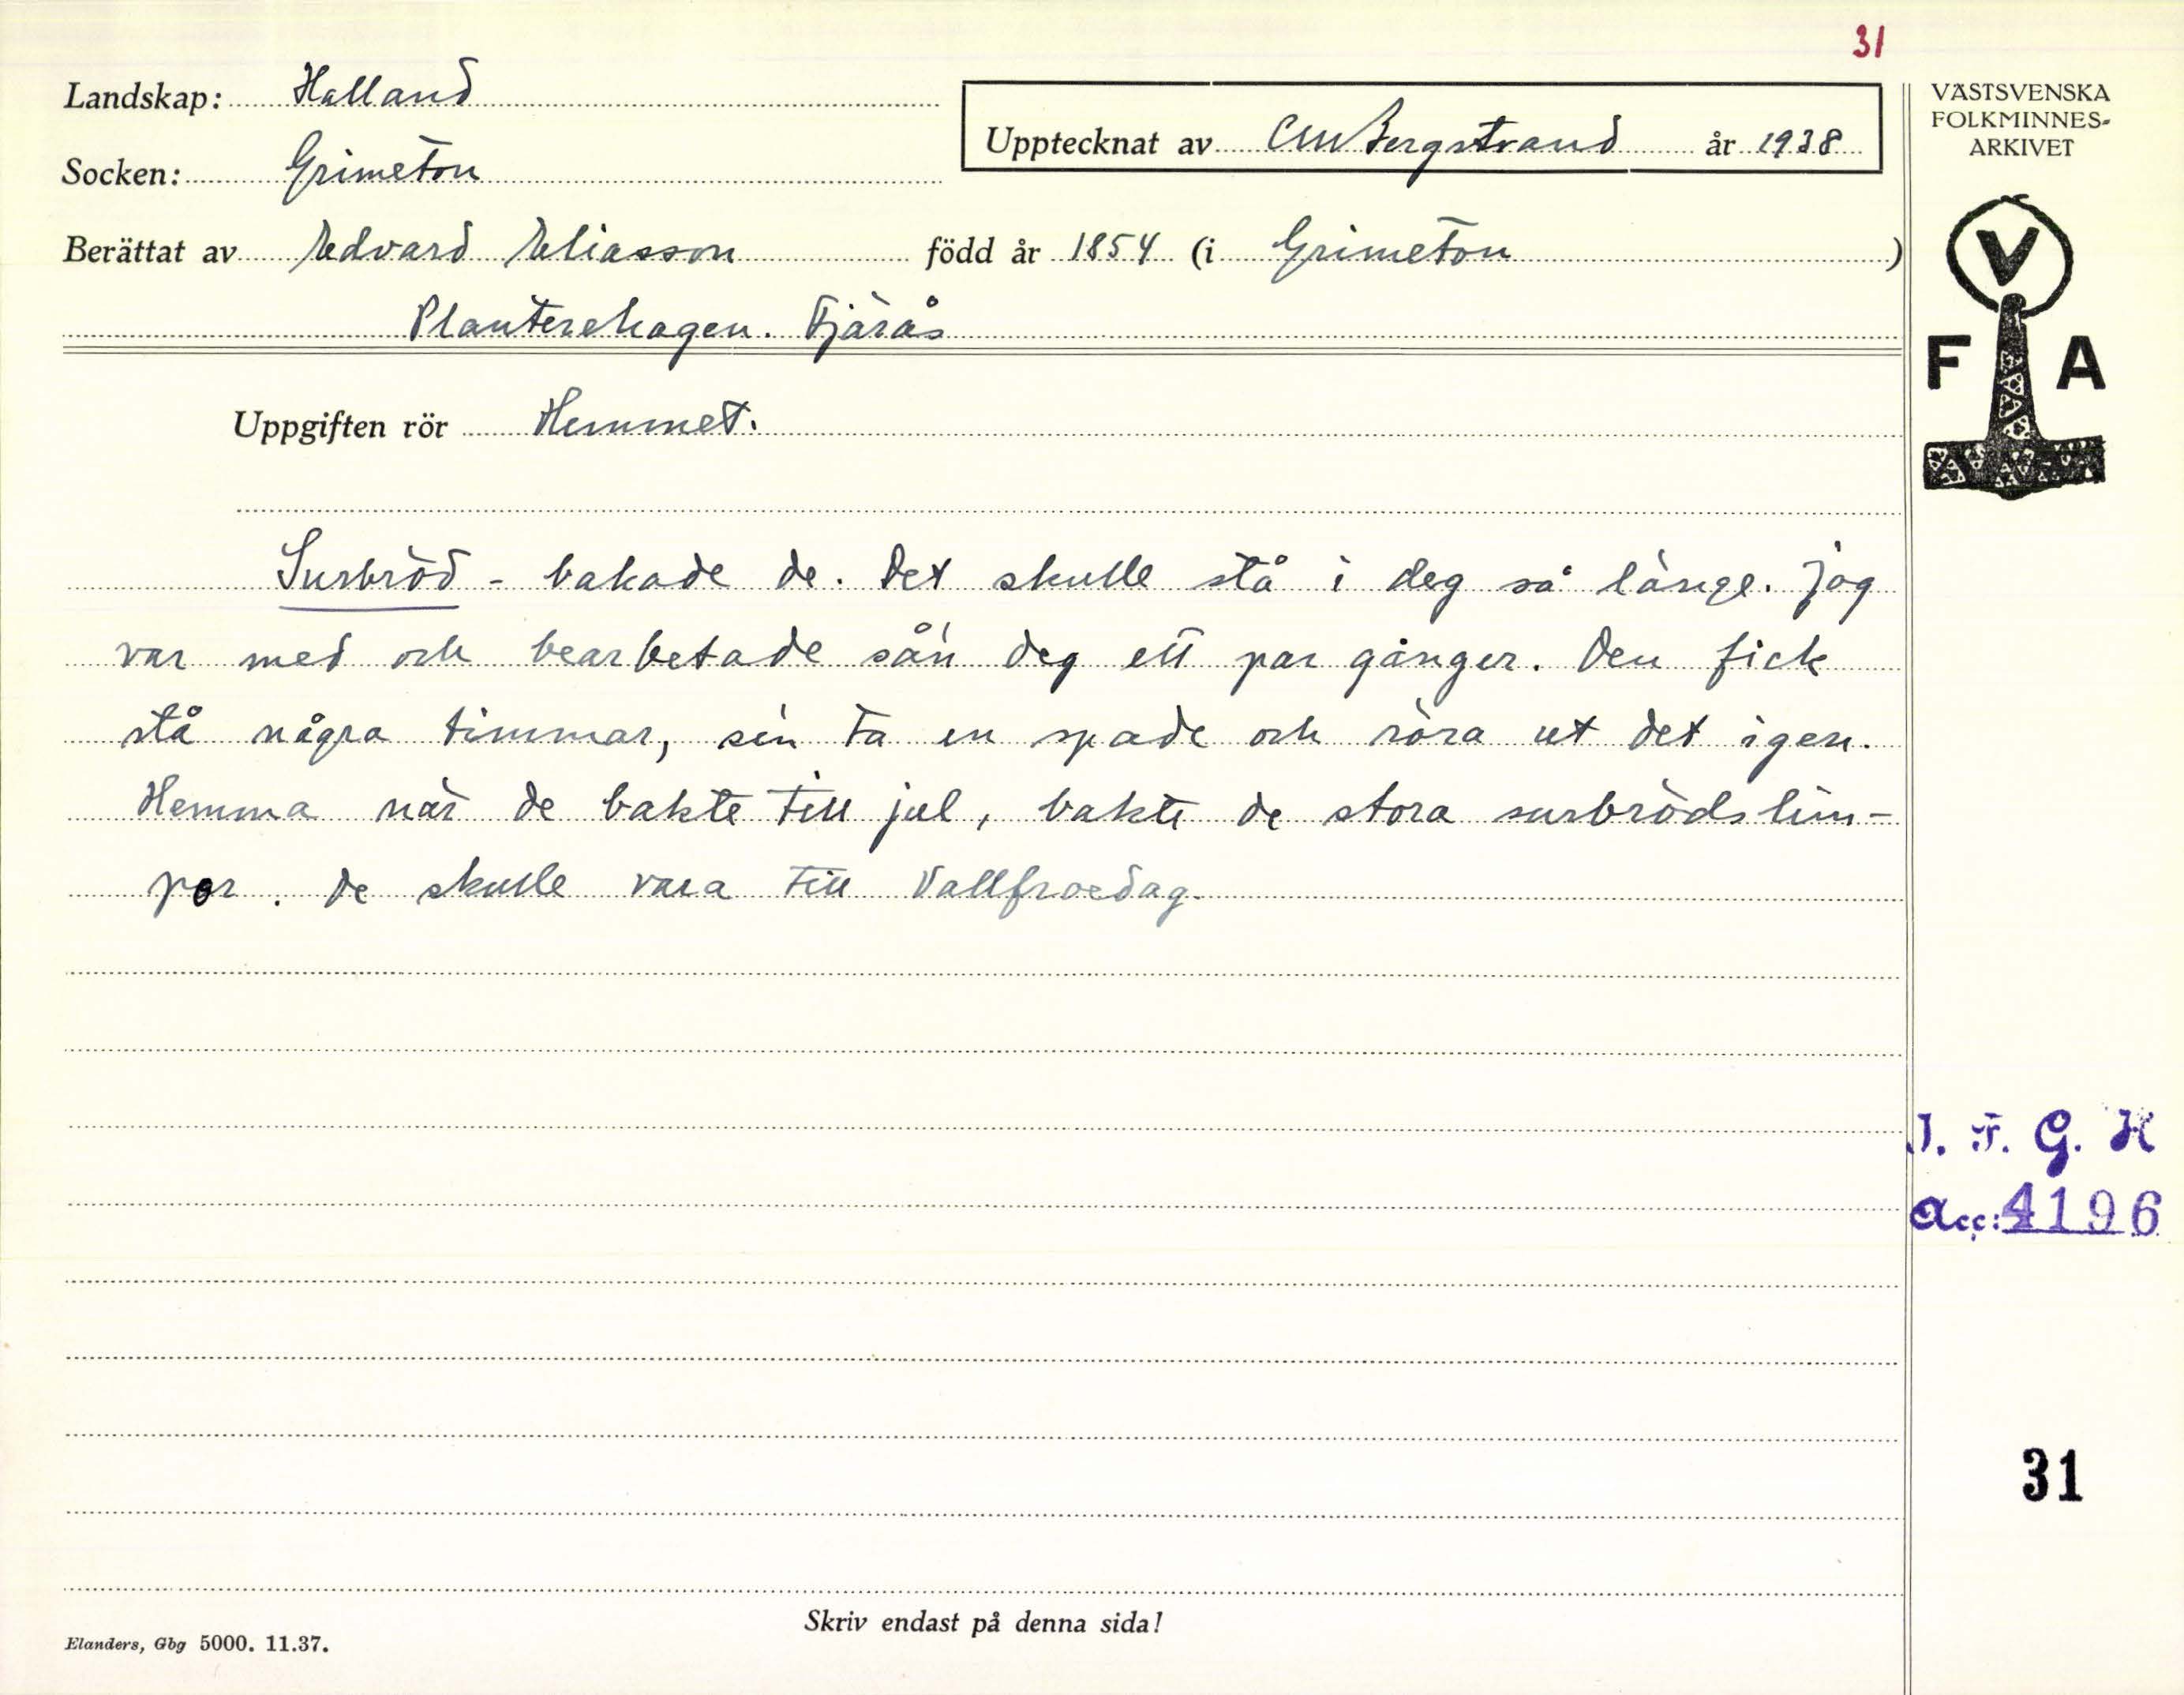 31
Landskap: Halland
Upptecknat av CMBergstrand år 1938
Socken: Grimeton
Berättat av Edvard Eliasson född år 1854 (i Grimeton)
Planterehagen. Fjärås
Uppgiften rör Hemmet.
Surbröd - bakade de. Det skulle stå i deg så länge. Jag
var med och bearbetade sån deg ett par gånger. Den fick
stå några timmar, sén ta en spade och röra ut det igen.
Hemma när de bakte till jul, bakte de stora surbrödslim-
por. de skulle vara till Vallfroedag.
Skriv endast på denna sida!
Elanders, Gbg 5000. 11.37.
VÄSTSVENSKA
FOLKMINNES-
ARKIVET
V
F A
I. F. G. H
Acc: 4196
31